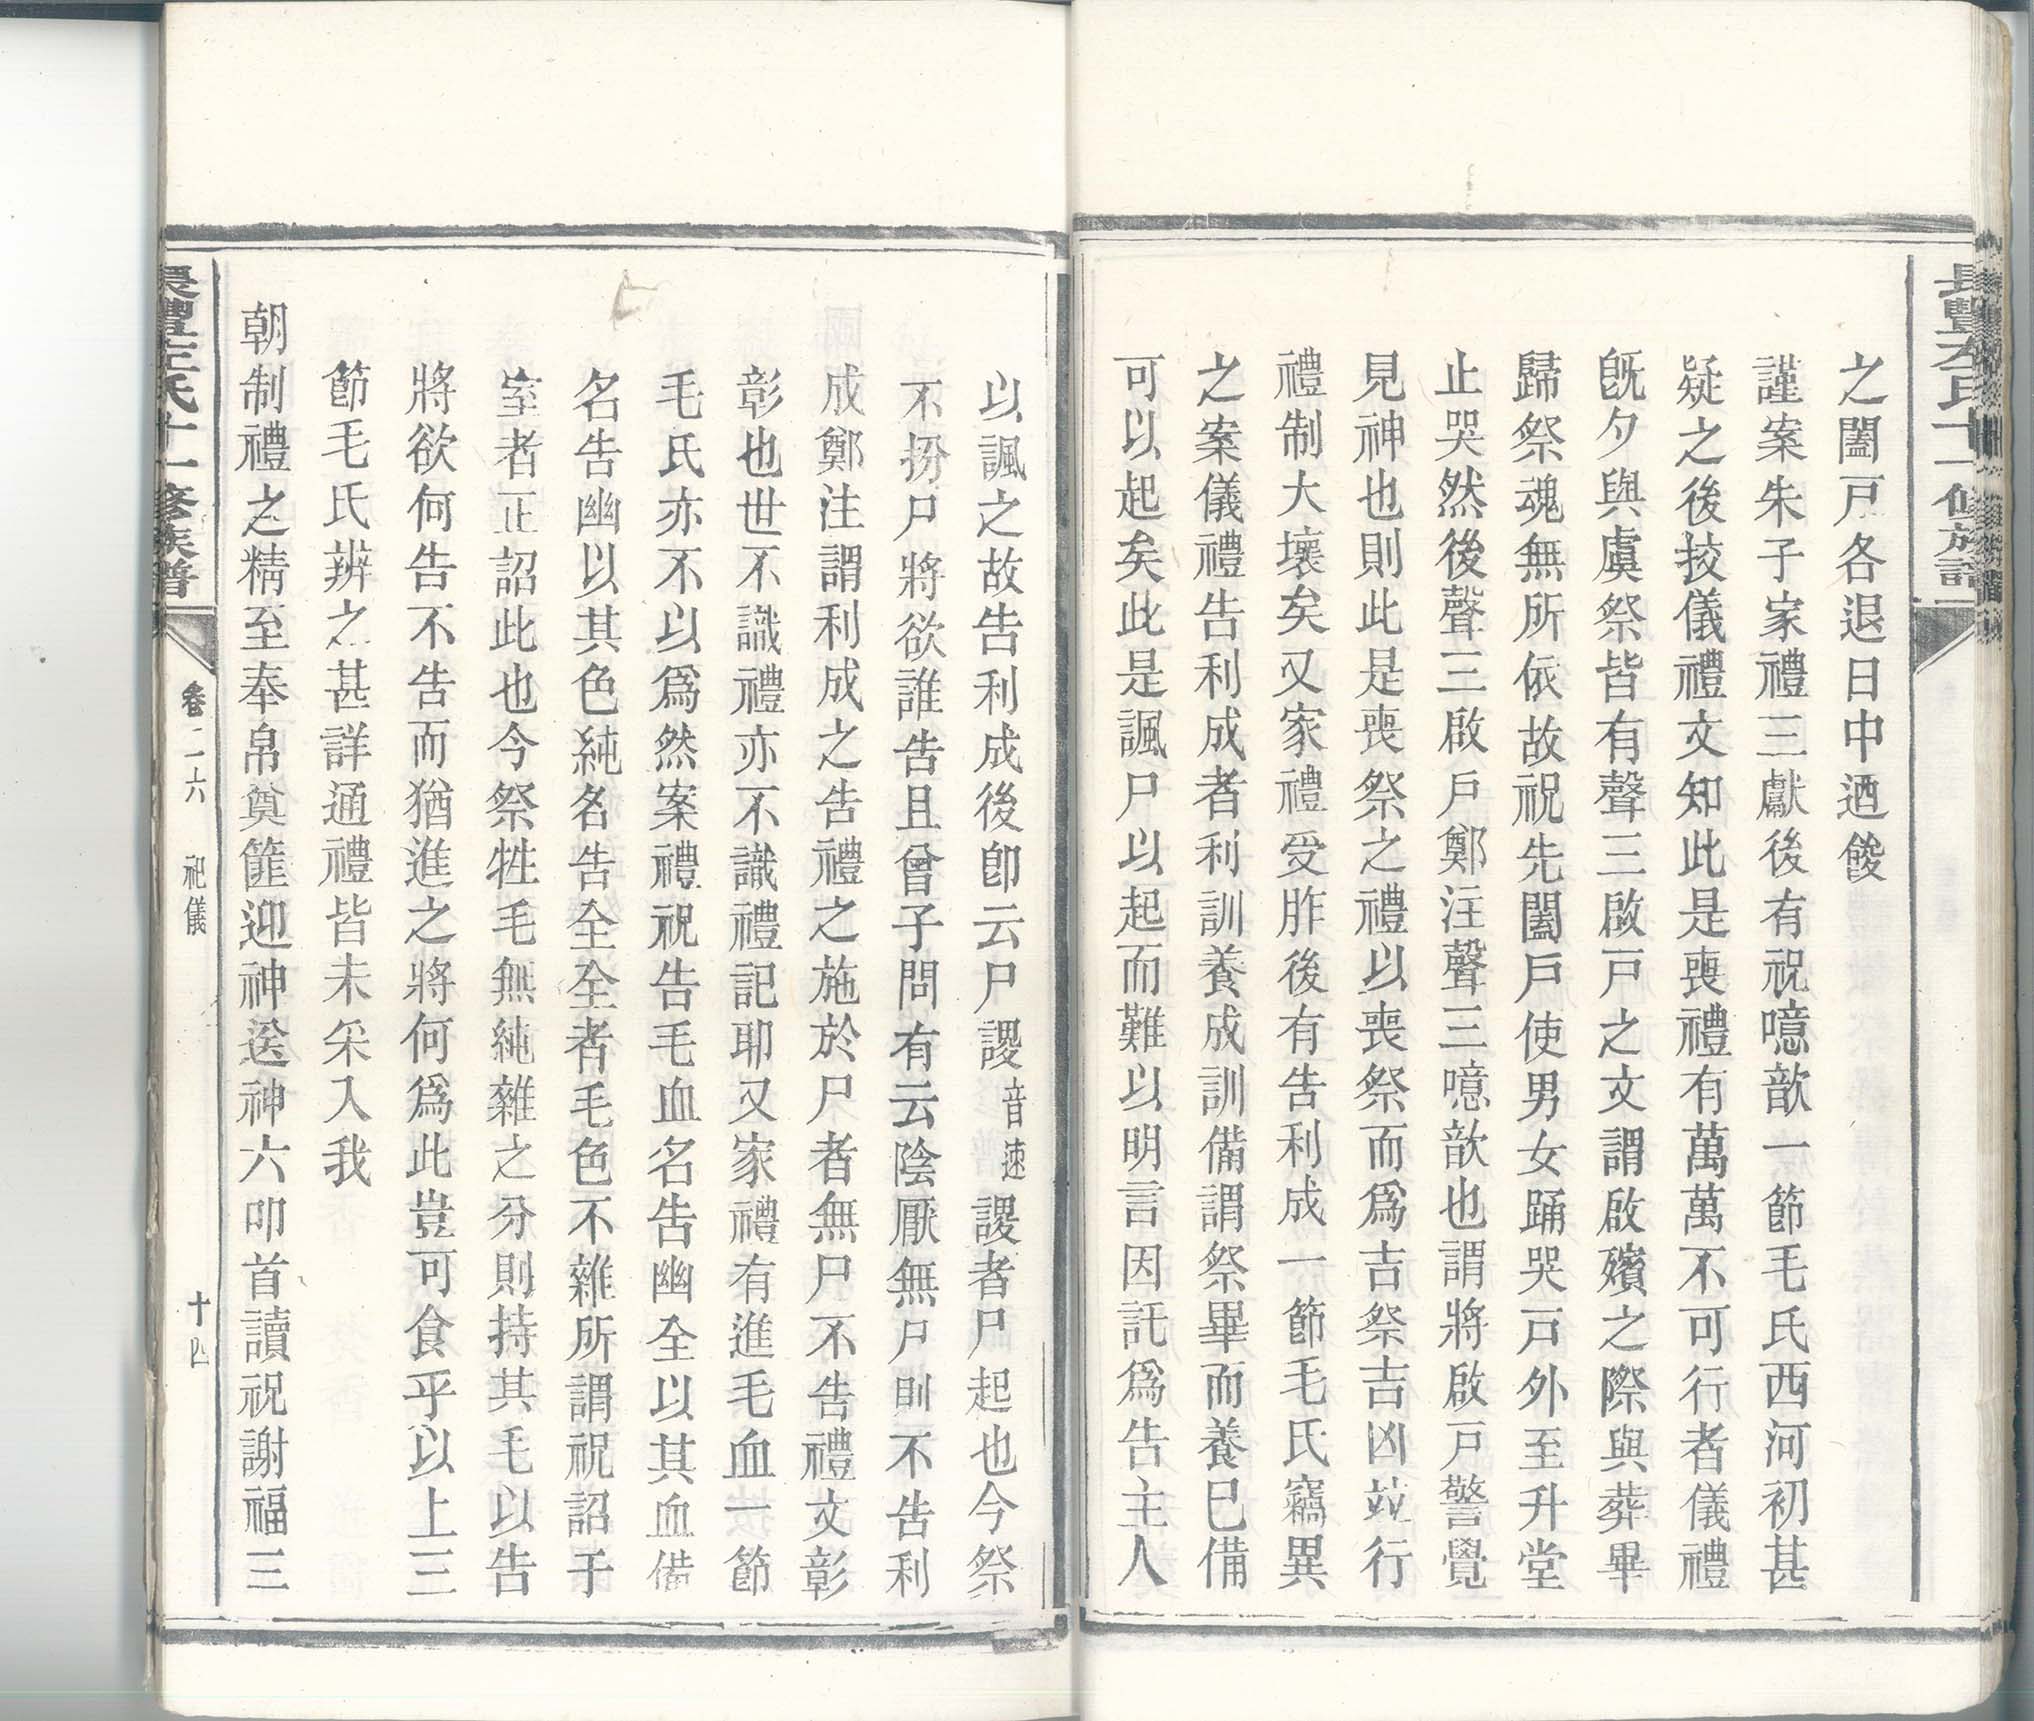 長豐左氏十一修族譜
之闔戸各退日中迺餕
謹案朱子家禮三獻後有祝噫歆一節毛氏西河初甚
疑之後挍儀禮文知此是喪禮有萬萬不可行者儀禮
旣夕與虞祭皆有聲三啟戸之文謂啟殯之際與葬畢
歸祭魂無所依故祝先闔戸使男女踊哭戸外至升堂
止哭然後聲三啟戸鄭注聲三噫歆也謂將啟戸警覺
見神也則此是喪祭之禮以喪祭而爲吉祭吉凶竝行
禮制大壞矣又家禮受胙後有告利成一節毛氏竊異
之案儀禮告利成者利訓養成訓備謂祭畢而養已備
可以起矣此是諷尸以起而難以明言因託爲告主人
以諷之故告利成後卽云尸謖音速謖者尸起也今祭
不扮尸將欲誰告且曾子問有云陰厭無尸則不告利
成鄭注謂利成之告禮之施於尸者無尸不告禮文彰
彰也世不識禮亦不識禮記耶又家禮有進毛血一節
毛氏亦不以爲然案禮祝告毛血名告幽全以其血備
名告幽以其色純名告全全者毛色不雜所謂祝詔于
室者正詔此也今祭牲毛無純雜之分則持其毛以告
將欲何告不告而猶進之將何爲此豈可食乎以上三
節毛氏辨之甚詳通禮皆未采入我
朝制禮之精至奉帛奠篚迎神送神六叩首讀祝謝福三
長豐左氏十一修族譜
卷二六 祀儀 十四